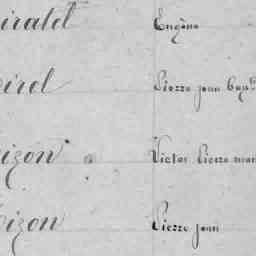 iratet Eugène
irel Pierre jean Bapt
izon Victor Pierre mar
izon Pierre jean